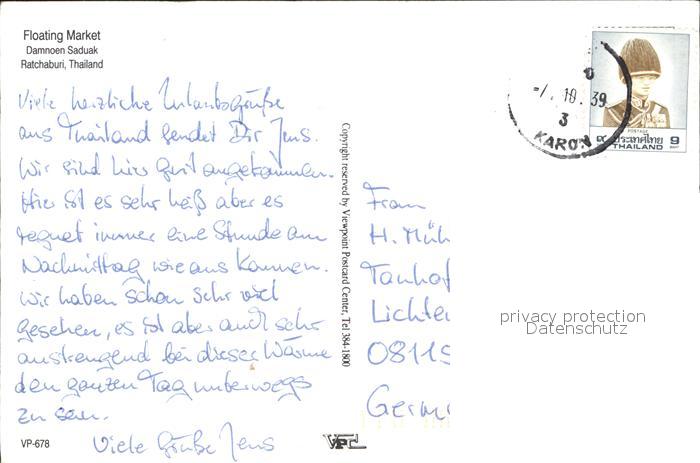 Floating Market
Damnoen Saduak
Ratchaburi, Thailand
Viele herzliche Urlaubsgrüße
aus Thailand sendet Dir Jens.
Wir sind hier gut angekommen.
Hier ist es sehr heiß aber es
regnet immer eine Stunde am
Nachmittag wie aus Kannen.
Wir haben schon sehr viel
gesehen, es ist aber auch sehr
anstrengend bei dieser Wärme
den ganzen Tag unterwegs
zu sein.
Viele Grüße Jens
VP-678
Copyright reserved by Viewpoint Postcard Center, Tel 384-1800
VPC
10 39
3
KARON
POSTAGE
๙ ประเทศไทย 9
THAILAND BAHT
Frau
H. Müh
Tanhof
Lichte
08115
Germ
privacy protection
Datenschutz